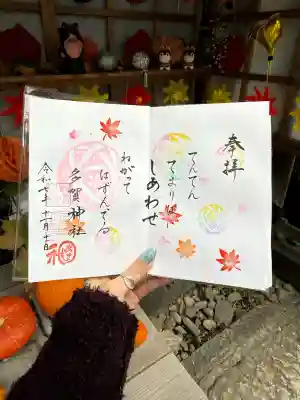 奉拝
てんてん
てまり
しあわせ
ねがって
はずんでる
多賀神社
令和七年十一月十日